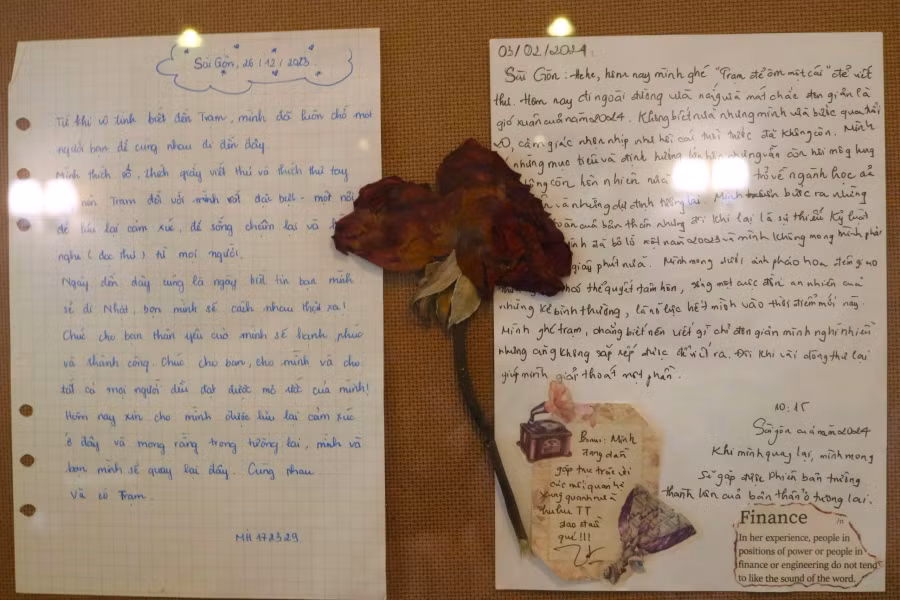 Sài Gòn, 26/12/2023
Từ khi vô tình biết đến Trạm, mình đã luôn chờ mọi
người bạn để cùng nhau đi đến đây.
Mình thích sổ, thích giấy viết thư và thích thư tay
nên Trạm đối với mình rất đặc biệt - một nơi
để lưu lại cảm xúc, để sống chậm lại và
nghe (đọc thư) từ mọi người.
Ngày đến đây cũng là ngày biết tin bạn mình
sẽ đi Nhật, bọn mình sẽ cách nhau thật xa!
Chúc cho bạn thân yêu của mình sẽ hạnh phúc
và thành công. Chúc cho bạn, cho mình và cho
tất cả mọi người đều đạt được mơ ước của mình!
Hôm nay xin cho mình được lưu lại cảm xúc
ở đây và mong rằng trong tương lai, mình và
bạn mình sẽ quay lại đây. Cùng nhau
về lò Trạm.
MH 172329
03/02/2024.
Sài Gòn: Hehe, hôm nay mình ghé "Trạm để ôm một cái" để viết
thư. Hôm nay đi ngoài đường vừa nắng vừa mát chắc đơn giản là
gió xuân của năm 2024. Không biết nữa nhưng mình vừa bước qua tuổi
20, cảm giác nhộn nhịp như hồi các tuổi trước đã không còn. Mình
những mục tiêu và định hướng lớn hơn nhưng vẫn còn hơi mông lung
không còn hồn nhiên nữa về ngành học
và những dự định tương lai. Mình muốn bước ra những
của bản thân nhưng đôi khi lại là sự thiếu kỷ luật
mình đã bỏ lỡ một năm 2023 và mình không mong mình phải
giây phút nữa. Mình mong dưới ánh pháo hoa đêm giao
có thể quyết tâm hơn, sống một cuộc đời an nhiên của
những kẻ bình thường, là nỗ lực hết mình vào thời điểm mới này.
Mình ghé trạm, chẳng biết nên viết gì chỉ đơn giản mình nghĩ nhiều
nhưng cũng không sắp xếp được để viết ra. Đôi khi vài dòng thư lại
giúp mình giải thoát một phần.
10:15
Sài gòn của năm 2024
Khi mình quay lại, mình mong
Sẽ gặp được phiên bản trưởng
thành hơn của bản thân ở tương lai.
Bonus: Mình
đang dần
gặp trục trặc với
các mối quan hệ
xung quanh nữa
huhu TT
sao
quá!!!
Finance
in
In her experience, people in
positions of power or people in
finance or engineering do not tend
to like the sound of the word.